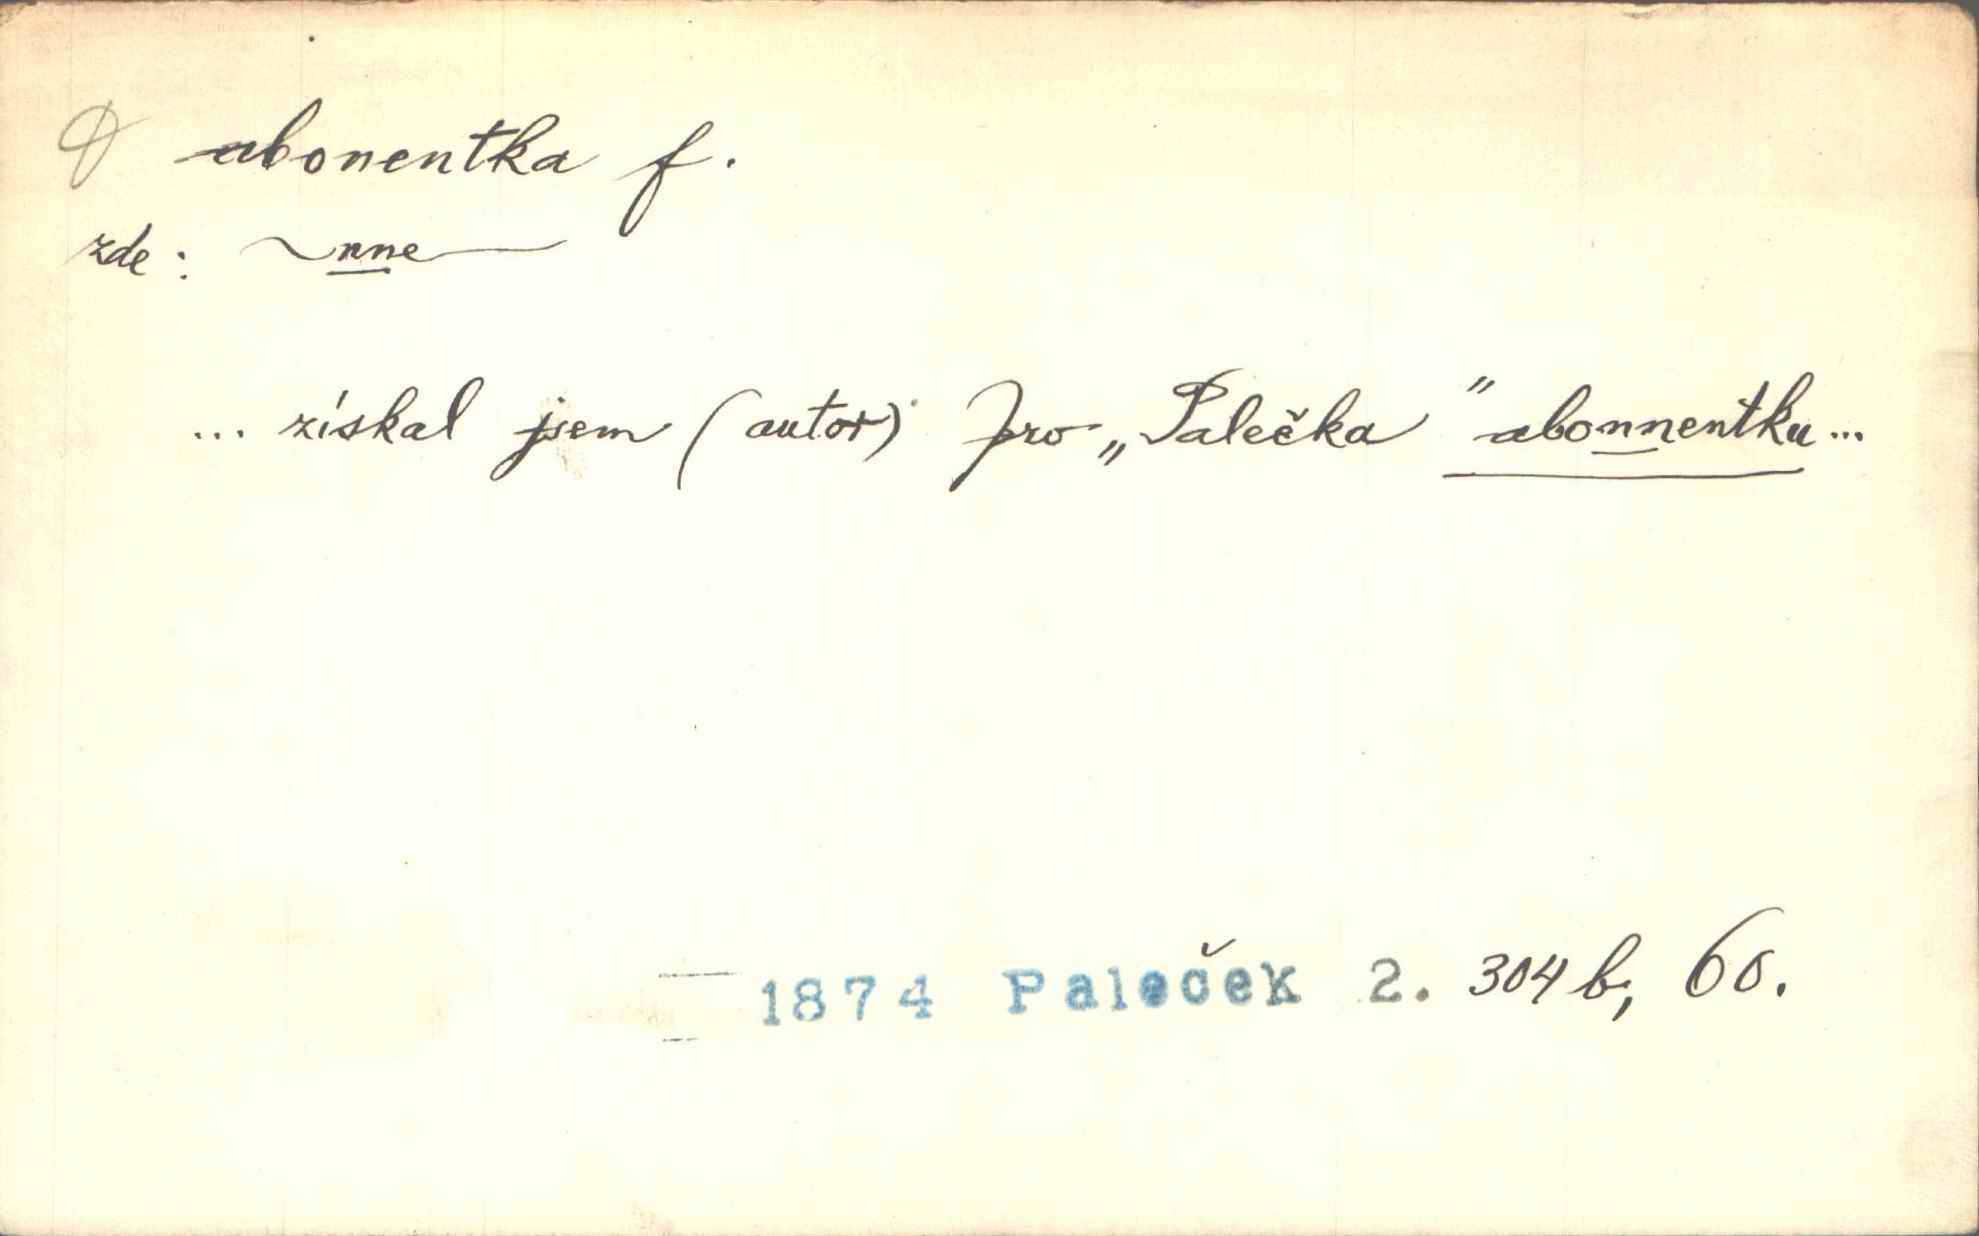 abonentka f.
zde: ~nne—
... získal jsem (autor) pro „Palečka" abonnentku...
1874 Paleček 2. 304 b, 60.